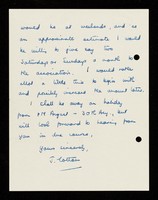 would be at weekends, and as
an approximate estimate I would
be willing to give say two
Saturdays or Sundays a month to
the association. I would rather
start a little this to begin with
and possibly increase the amount later.
I shall be away on holiday
from 14th August - 30th Aug, but
will look forward to hearing from
you in due course,
Yours sincerely,